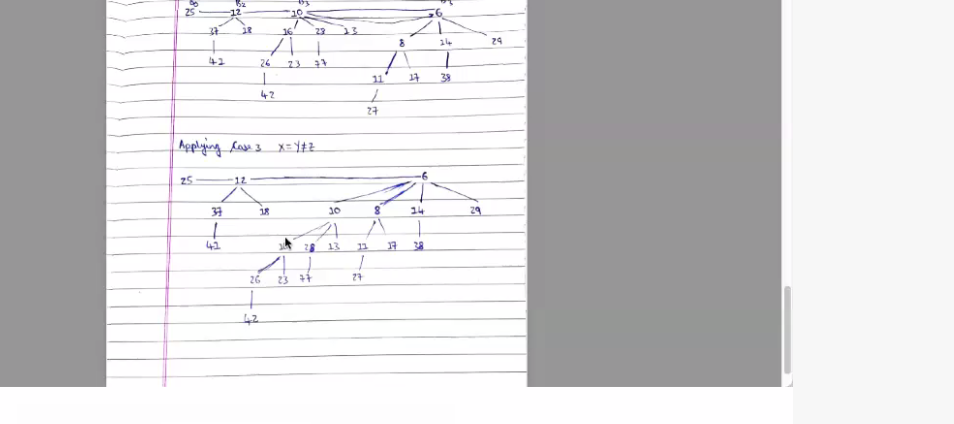 25 12 10 6
37 18 16 28 13 8 14 29
42 26 23 77 11 17 38
42 27
Applying Case 3 X=Y≠Z
25 12 6
37 18 10 8 14 29
41 28 13 11 17 38
26 23 77 27
42